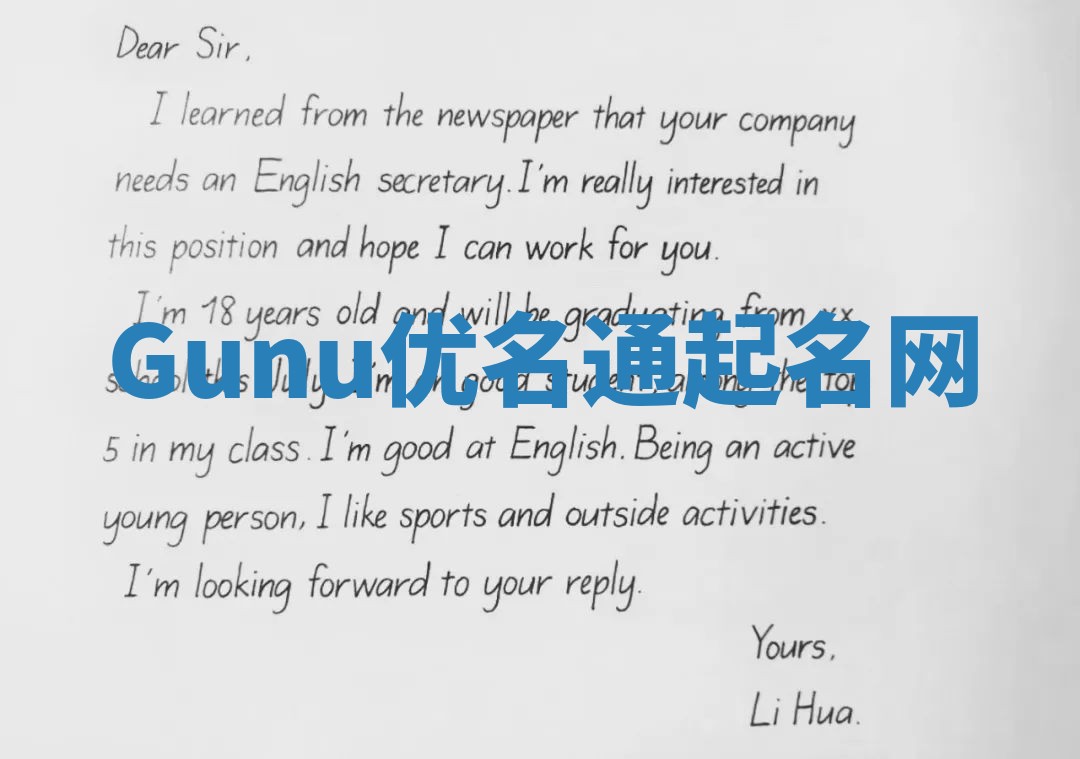 Dear Sir,
I learned from the newspaper that your company
needs an English secretary. I'm really interested in
this position and hope I can work for you.
I'm 18 years old and will be graduating from xx
Gunu优名通起名网
school this July. I'm an good student, among the top
5 in my class. I'm good at English. Being an active
young person, I like sports and outside activities.
I'm looking forward to your reply.
Yours,
Li Hua.